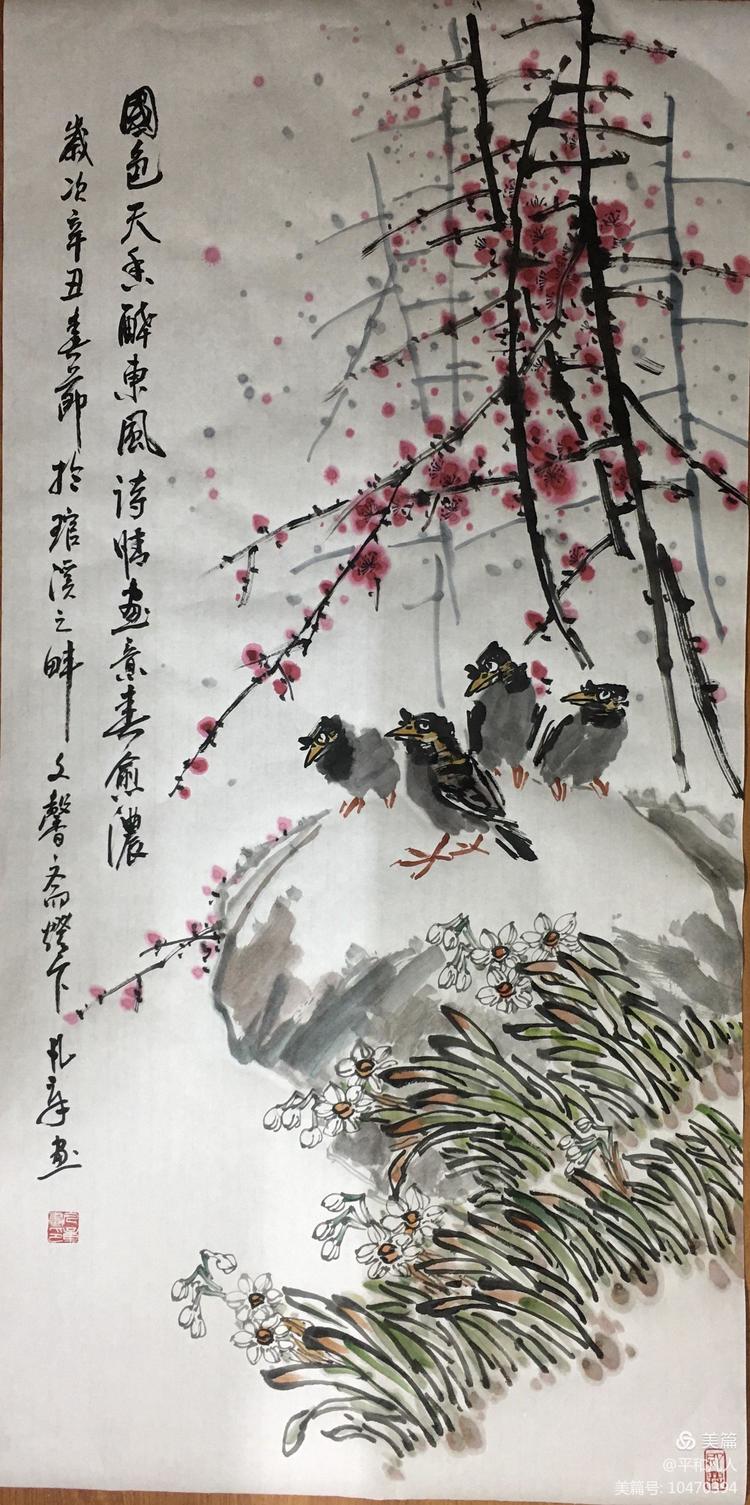 國色天香醉東風詩情畫意春愈濃
歲次辛丑春節於琯溪之畔文馨斋燈下
美篇
@平和
美篇号: 10470394